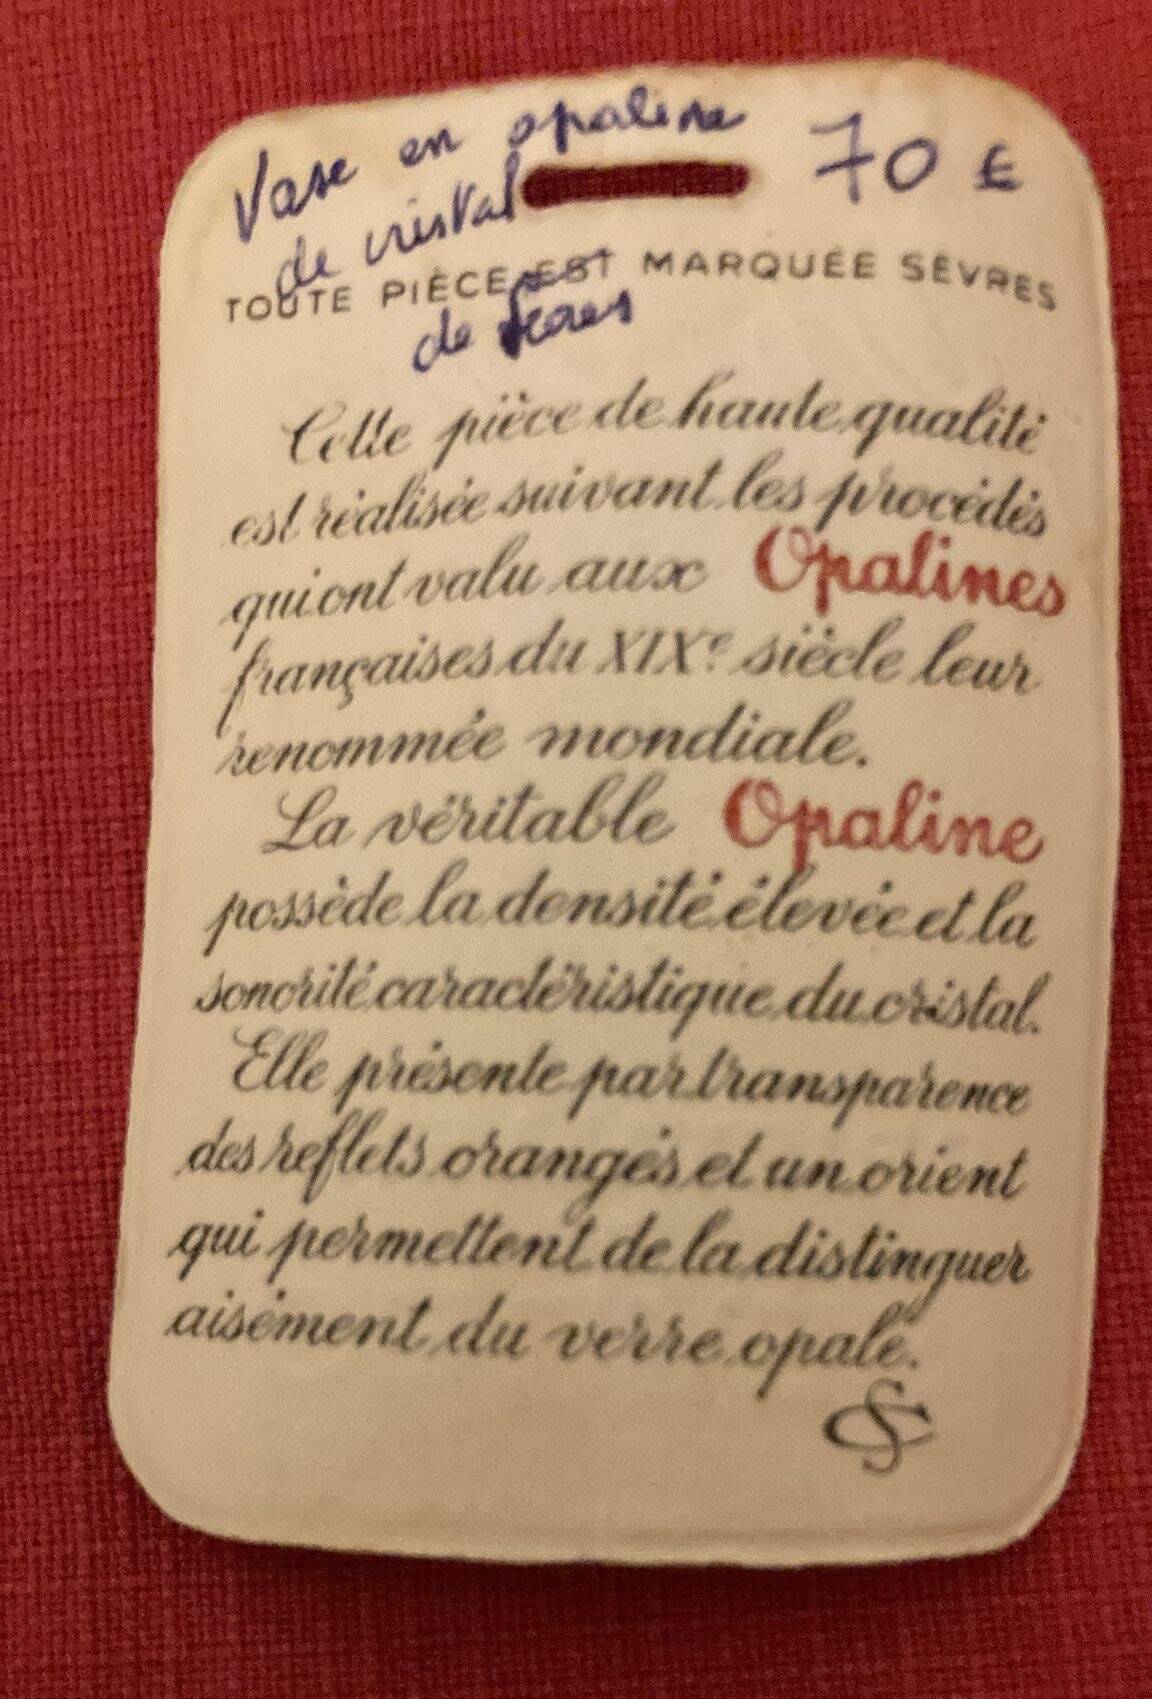 Vase en opaline 70 €
de cristal
TOUTE PIÈCE EST MARQUÉE SÈVRES
de Sèvres
Cette pièce de haute qualité
est réalisée suivant les procédés
qui ont valu aux Opalines
françaises du XIXe siècle leur
renommée mondiale.
La véritable Opaline
possède la densité élevée et la
sonorité caractéristique du cristal.
Elle présente par transparence
des reflets orangés et un orient
qui permettent de la distinguer
aisément du verre opalé.